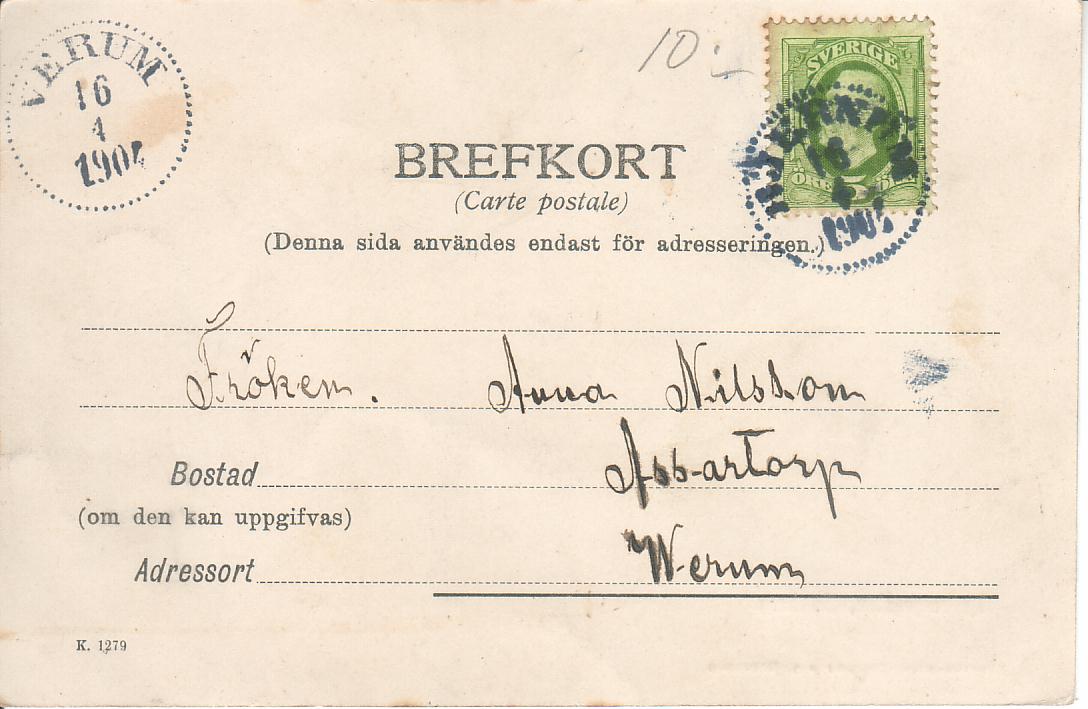 VERUM
16
4
1904
10:-
SVERIGE
ÖRE 5 ÖRE
16
4
1904
BREFKORT
(Carte postale)
(Denna sida användes endast för adresseringen.)
Fröken. Anna Nilsson
Assartorp
Bostad
(om den kan uppgifvas)
Werum
Adressort
K. 1279